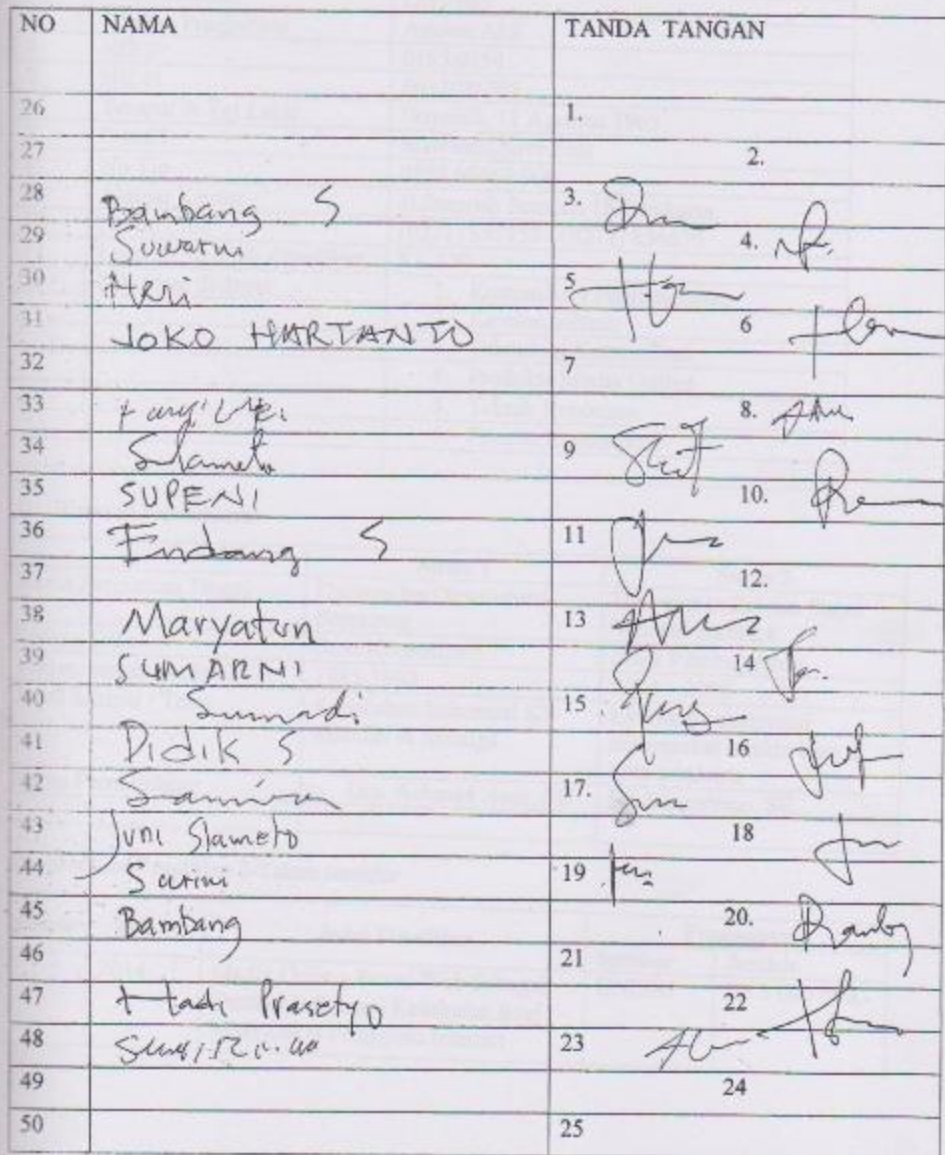 NO NAMA TANDA TANGAN
26 1.
27 2.
28 Bambang S 3.
29 Suwarni 4.
30 Heri 5
31 JOKO HARTANTO 6
32 7
33 8.
34 Slameto 9
35 SUPENI 10.
36 Endang S 11
37 12.
38 Maryatun 13
39 SUMARNI 14
40 Sumadi 15.
41 Didik S 16
42 17.
43 Juni Slameto 18
44 Sarini 19
45 Bambang 20.
46 21
47 Hadi Prasetyo 22
48 23
49 24
50 25